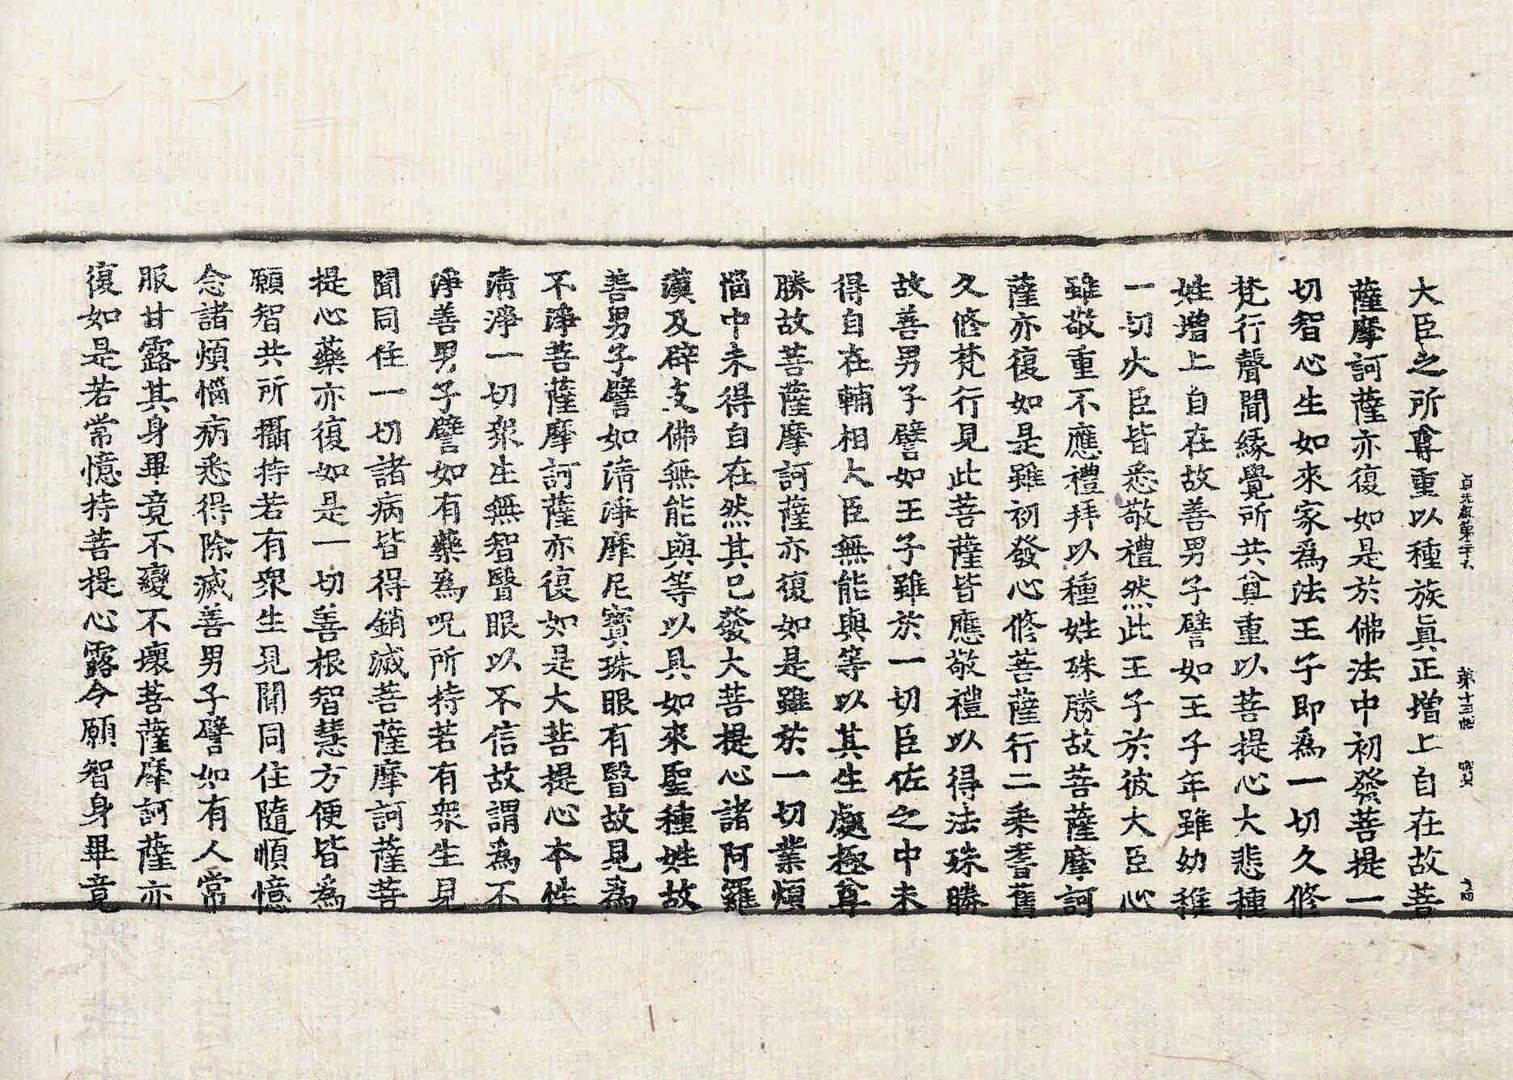 貞元經第三十六 第十三張 號
大臣之所尊重以種族眞正增上自在故菩
薩摩訶薩亦復如是於佛法中初發菩提一
切智心生如來家爲法王子即爲一切久修
梵行聲聞緣覺所共尊重以菩提心大悲種
姓增上自在故善男子譬如王子年雖幼稚
一切大臣皆悉敬禮然此王子於彼大臣心
雖敬重不應禮拜以種姓殊勝故菩薩摩訶
薩亦復如是雖初發心修菩薩行二乘耆舊
久修梵行見此菩薩皆應敬禮以得法殊勝
故善男子譬如王子雖於一切臣佐之中未
得自在輔相大臣無能與等以其生處極尊
勝故菩薩摩訶薩亦復如是雖於一切業煩
惱中未得自在然其已發大菩提心諸阿羅
漢及辟支佛無能與等以具如來聖種姓故
善男子譬如清淨摩尼寶珠眼有翳故見爲
不淨菩薩摩訶薩亦復如是大菩提心本性
清淨一切衆生無智翳眼以不信故謂爲不
淨善男子譬如有藥爲呪所持若有衆生見
聞同住一切諸病皆得銷滅菩薩摩訶薩菩
提心藥亦復如是一切善根智慧方便皆爲
願智共所攝持若有衆生見聞同住隨順憶
念諸煩惱病悉得除滅善男子譬如有人常
服甘露其身畢竟不變不壞菩薩摩訶薩亦
復如是若常憶持菩提心露令願智身畢竟